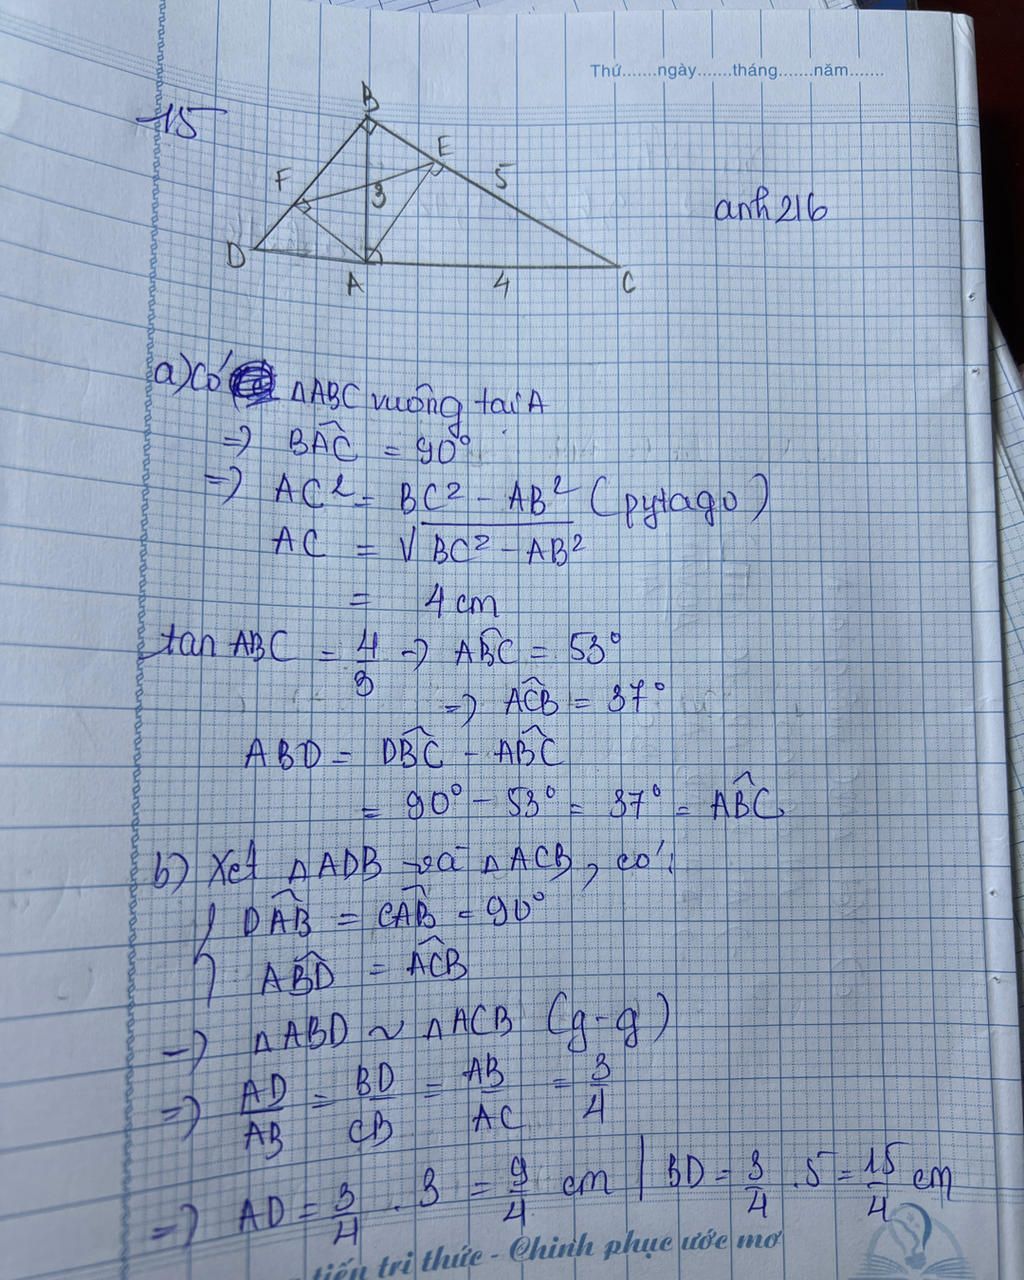 Thứ.......ngày.......tháng.......năm.......
15
B
E
5
F
3
anh 216
D
A
4
C
a) Có ΔABC vuông tại A
=> BÂC = 90°
=> AC² = BC² - AB² (pytago)
AC = √BC² - AB²
= 4 cm
tan ABC = 4/3 => AB̂C = 53°
=> AĈB = 37°
ABD = DB̂C - AB̂C
= 90° - 53° = 37° = AB̂C
b) Xét ΔADB và ΔACB, có:
{ DÂB = CÂB = 90°
AB̂D = AĈB
=> ΔABD ~ ΔACB (g-g)
=> AD/AB = BD/CB = AB/AC = 3/4
=> AD = 3/4 . 3 = 9/4 cm | BD = 3/4 . 5 = 15/4 cm
tiến tri thức - Chinh phục ước mơ